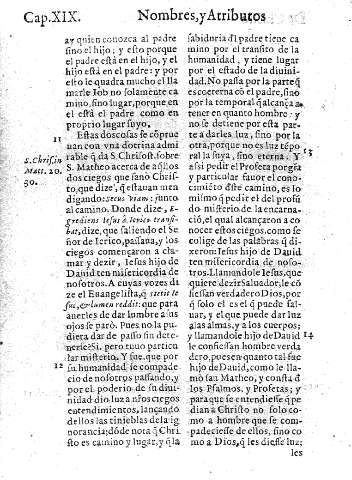 Cap.XIX.
Nombres, y Atributos
ay quien conozca al padre
sino el hijo; y esto porque
el padre està en el hijo, y el
hijo està en el padre: y por
esto le quadra mucho el lla
marle Iob no solamente ca
mino, sino lugar, porque en
el està el padre como en
proprio lugar suyo.
11
Estas dos cosas se cõprue
uan con vna dotrina admi
rable q̃ da S. Chrisost. sobre
S. Matheo acerca de aq̃llos
S. Chris. in
Matt. 20.
dos ciegos que sanò Chris-
to, que dize, q̃ estauan men
digando: secus viam: junto
al camino. Donde dize, E-
grediens Iesus à Ierico transi-
bat, dize, que saliendo el Se
ñor de Ierico, passaua, y los
ciegos començaron a cla-
mar y dezir, Iesus hijo de
Dauid ten misericordia de
nosotros. A cuyas vozes di
ze el Euangelista, q̃ stetit Ie
sus, & lumen reddit: que para
auerles de dar lumbre a sus
ojos se parò. Pues no la pu-
diera dar de passo sin dete-
nerse? Si. pero tuuo particu
lar misterio. Y fue, que por
12
su humanidad se compade
cio de nosotros passando, y
por el poderio de su diui-
nidad dio luz a nr̃os ciegos
entendimientos, lançando
dellos las tinieblas de la ig
norancia; dõde nota q̃ Chris
to es camino y lugar, y q̃ la
sabiduria dl̃ padre tiene ca
mino por el transito de la
humanidad, y tiene lugar
por el estado de la diuini-
dad. No passa por la parte q̃
es coeterna cõ el padre, sino
por la temporal q̃ alcança a
tener en quanto hombre: y
no se detiene por esta par-
te a darles luz, sino por la
otra, porque no es luz tẽpo
ral la suya, sino eterna. Y a
13
ssi pedir el Profeta por grã y
particular fauor el conoci-
miento dste camino, es lo
mismo q̃ pedir el del profũ
do misterio de la encarna-
ciõ, el qual alcançaron a co
nocer estos ciegos, como se
colige de las palabras q̃ di-
xeron: Iesus hijo de Dauid
ten misericordia de noso-
tros. Llamandole Iesus, que
quiere dezir Saluador, le cõ
fiessan verdadero Dios, por
q̃ solo es es el q̃ puede sal-
uar, y el que puede dar luz
a las almas, y a los cuerpos;
y llamandole hijo de Dauid
14
le confiessan hombre verda
dero, pues en quanto tal fue
hijo de Dauid, como le lla-
mò san Matheo, y consta d̃
los Psalmos, y Profetas; y
para que se entendiesse q̃ pe
dian a Christo no solo co
mo a hombre que se com-
padeciesse de ellos, sino co
mo a Dios, q̃ les diesse luz;
les